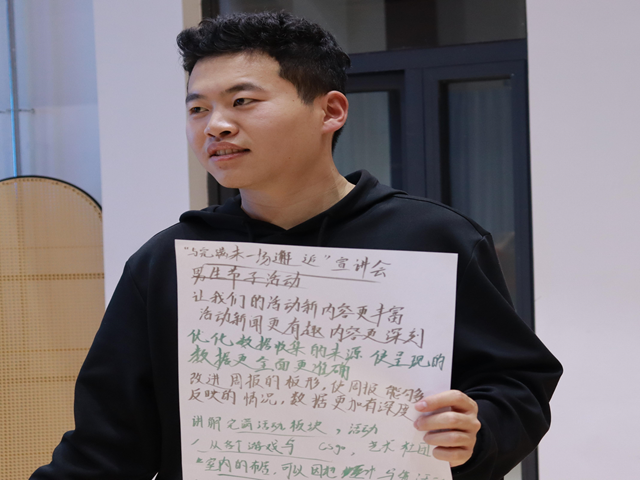 "与完满来一场邂逅"宣讲会
男生节子活动
让我们的活动新内容更丰富
活动新闻更有趣内容更深刻
优化数据收集的来源 使呈现的
数据更全面更准确
改进 周报的板形,使周报 能
反映的情况,数据更加有深度
讲解之前活动板块,活动
从 游戏与 csgo,艺术 社团
室内的布展,可以因